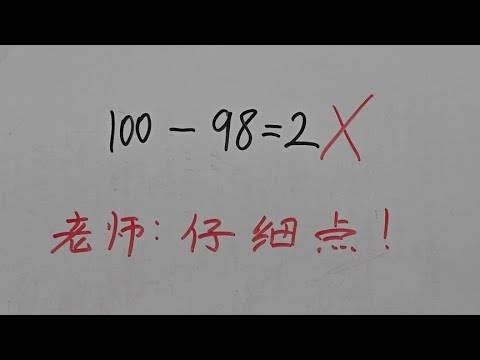 100-98=2 X
老师:仔细点!